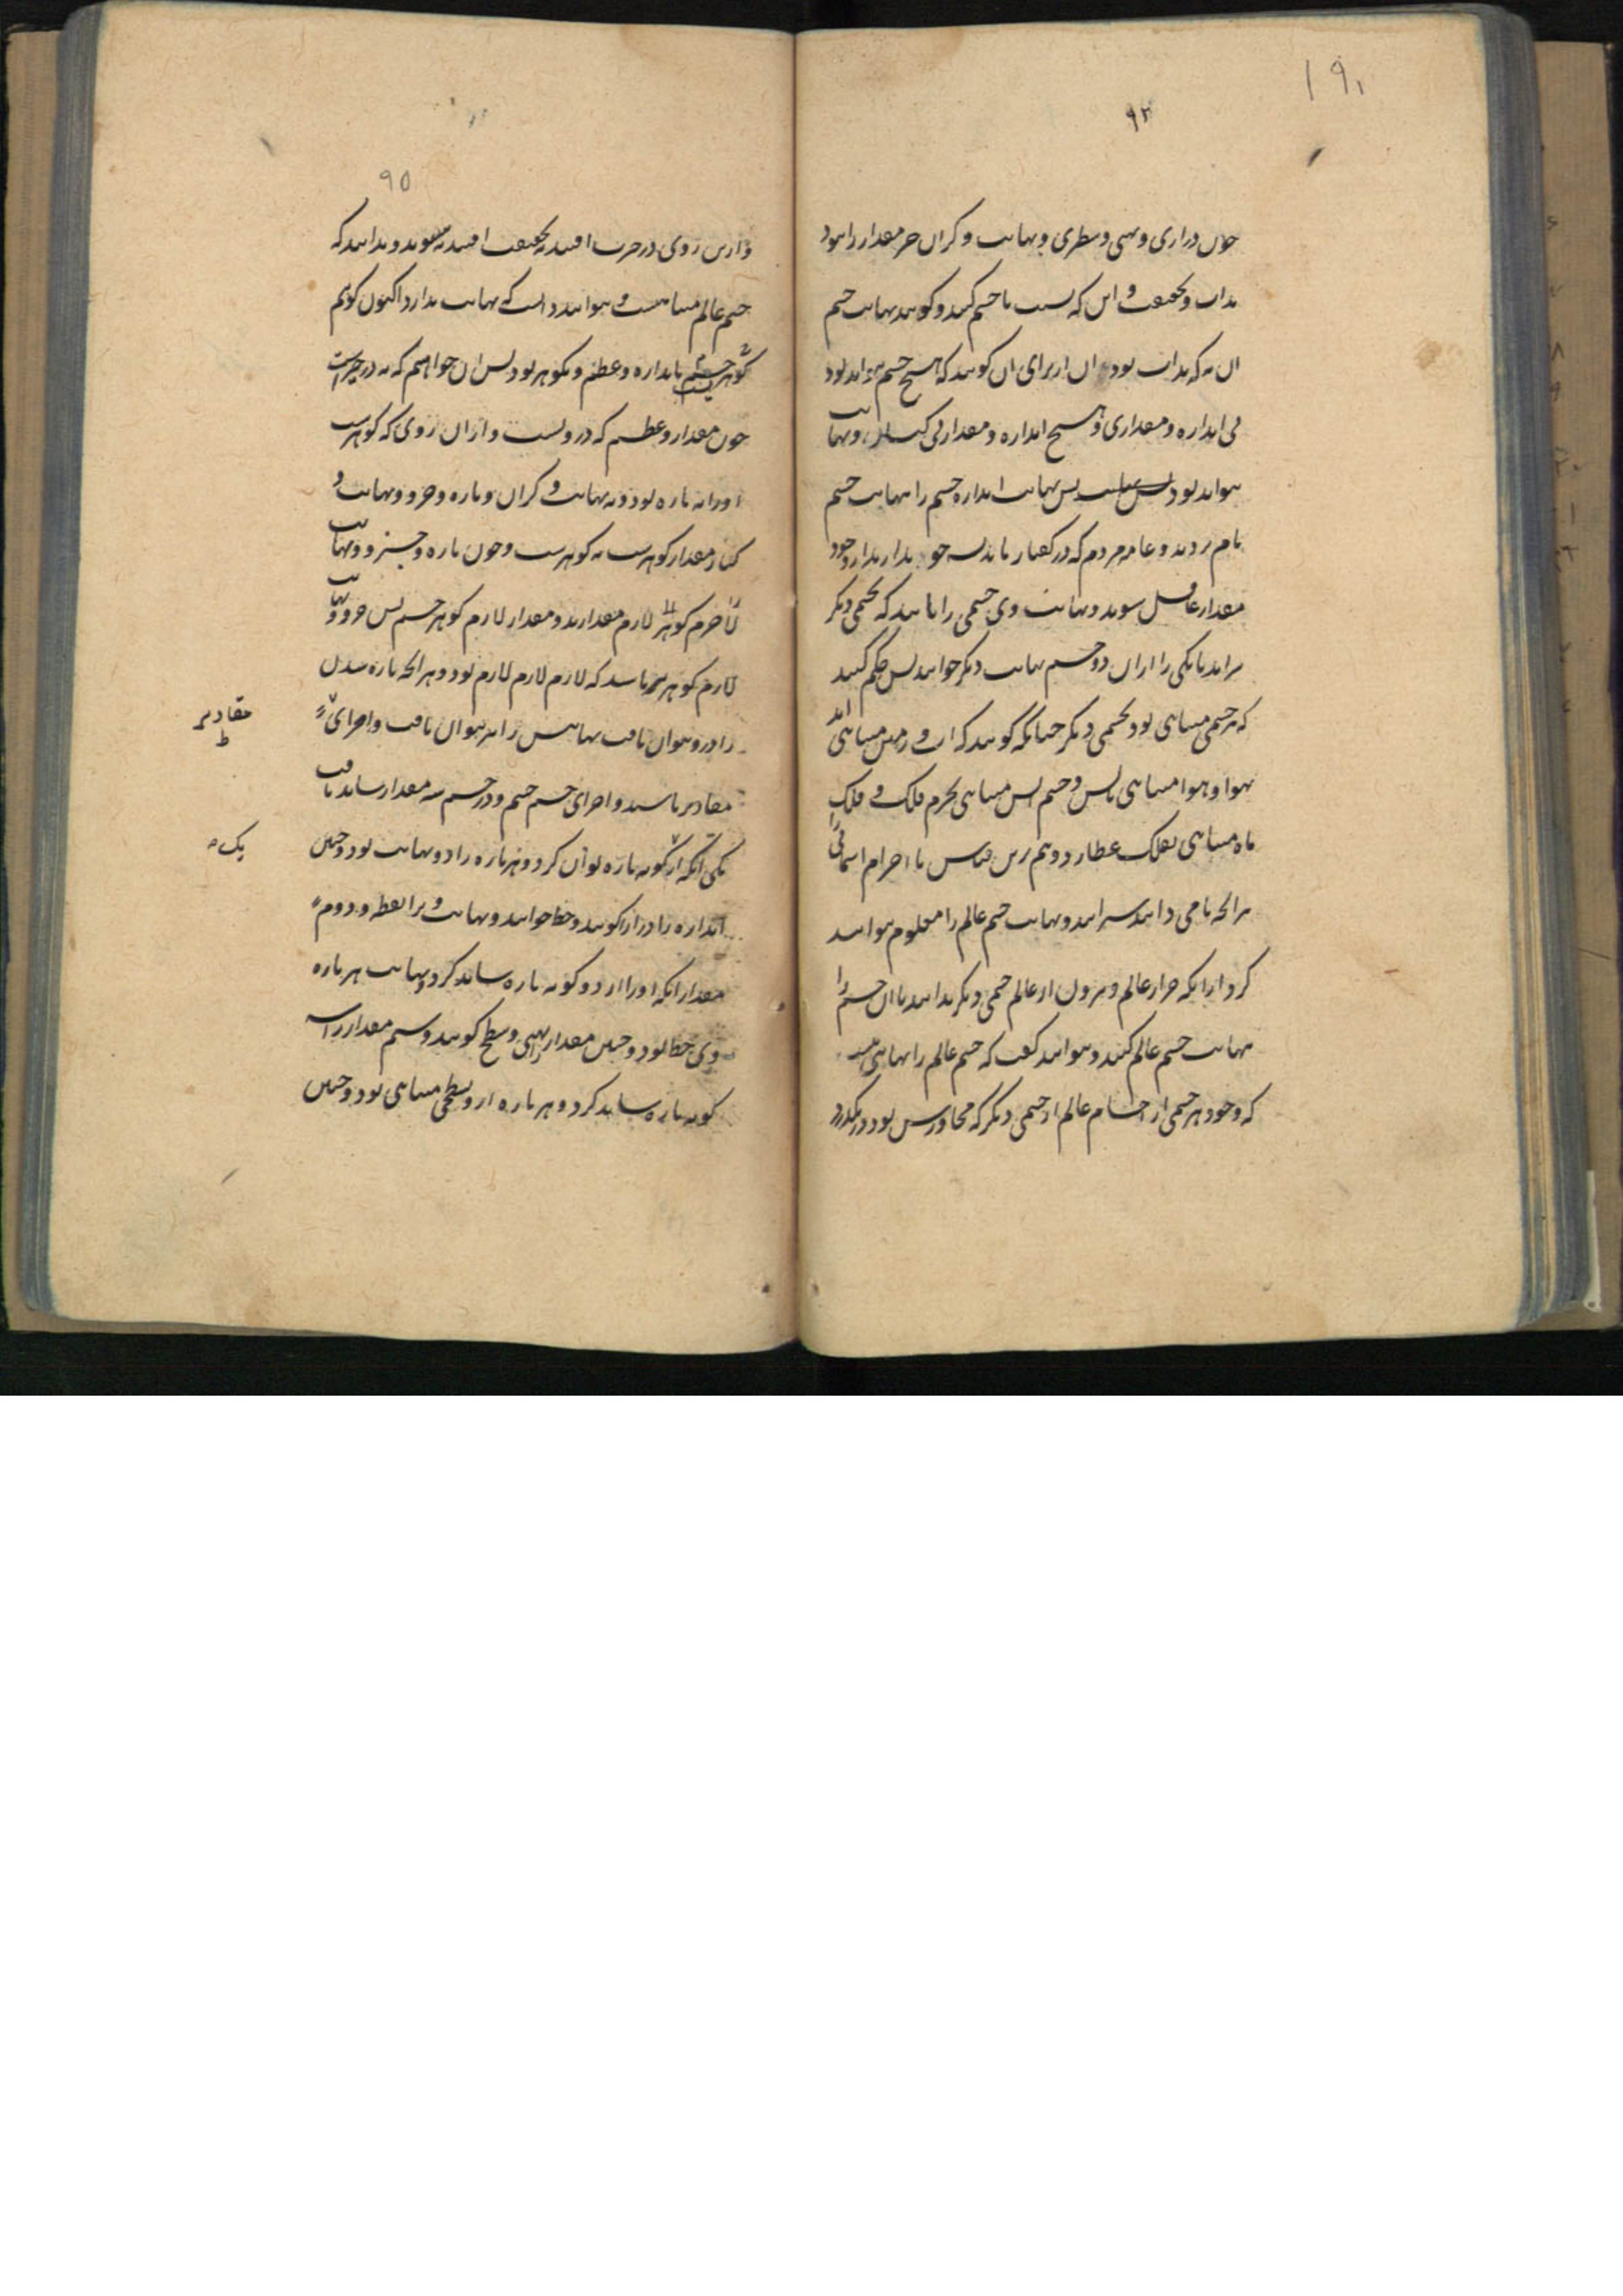 ۹۴
چون درازی و پهنی و سطبری و نهایت و کران جز مقدار را نبود
بذات و حقیقت و این که نسبت با جسم کنند و گویند نهایت جسم
ان نه که بذات بود ان از برای ان گویند که هیچ جسم نتواند بود
بی اندازه و مقداری و هیچ اندازه و مقدار بی کنار و نهایت
نتواند بود پس نهایت اندازه جسم را نهایت جسم
نام بردند و عامه مردم که در گفتار بدارند از وجود
مقدار غافل شوند و نهایت وی جسمی را یابند که بجسمی دیگر
براید تا یکی را از ان دو جسم نهایت دیگر خوانند پس حکم کنند
که هر جسمی متناهی بود بجسمی دیگر چنانکه گویند که اب و زمین متناهی اند
بهوا و هوا متناهی باتش و جسم اتش متناهی بجرم فلک و فلک
ماه متناهی بفلک عطارد و هم برین قیاس تا اجرام اسمانی را
برانچه نامی دانند سرایند و نهایت جسم عالم را معلوم نتوانند
کرد ازانکه جز از عالم و بیرون از عالم جسمی دیگر ندانند تا ان جسم را
نهایت جسم عالم کنند و نتوانند گفت که جسم عالم را نهایتی نیست
که وجود هر جسمی از اجسام عالم از جسمی دیگر که مجاورش بود درنگذرد
۹۵
و ازین روی در حیرت افتند بحقیقت افتند نه بغنوند و ندانند که
جسم عالم متناهیست و نتوانند دانست که نهایت ندارد اکنون گوییم
گوهر جسم باندازه و عظم و نگوهر بود پس ان خواهیم که نه در چیزیست
چون مقدار و عظم که دروست و ازان روی که گوهرست
اورا نه پاره بود و نه نهایت و کران و پاره و جزو و نهایت و
کنار مقدار گوهرست نه گوهرست و چون پاره و جزو و نهایت
لازم مقدارند و مقدار لازم گوهر جسم پس جزو و نهایت
لازم گوهر جسم باشد که لازم لازم لازم بود و هر انچه پاره شدن
را درو نتوان یافت نهایتش را نیز نتوان یافت و اجزای
مقادیر باشند و اجزای جسم جسم و در جسم سه مقدار شاید یافت
یکی انکه از یک گونه پاره توان کرد و هر پاره را دو نهایت بود و چنین
اندازه را دراز گویند و خط خوانند و نهایت ویرا نقطه و دوم
مقدار انکه اورا از دو گونه پاره شاید کرد و نهایت هر پاره
وی خط بود و چنین مقدار را پهنی و سطح گویند و سیم مقدار را سه
گونه پاره شاید کرد و هر پاره از و بسطحی متناهی بود و چنین
مقادیر
ط
یک